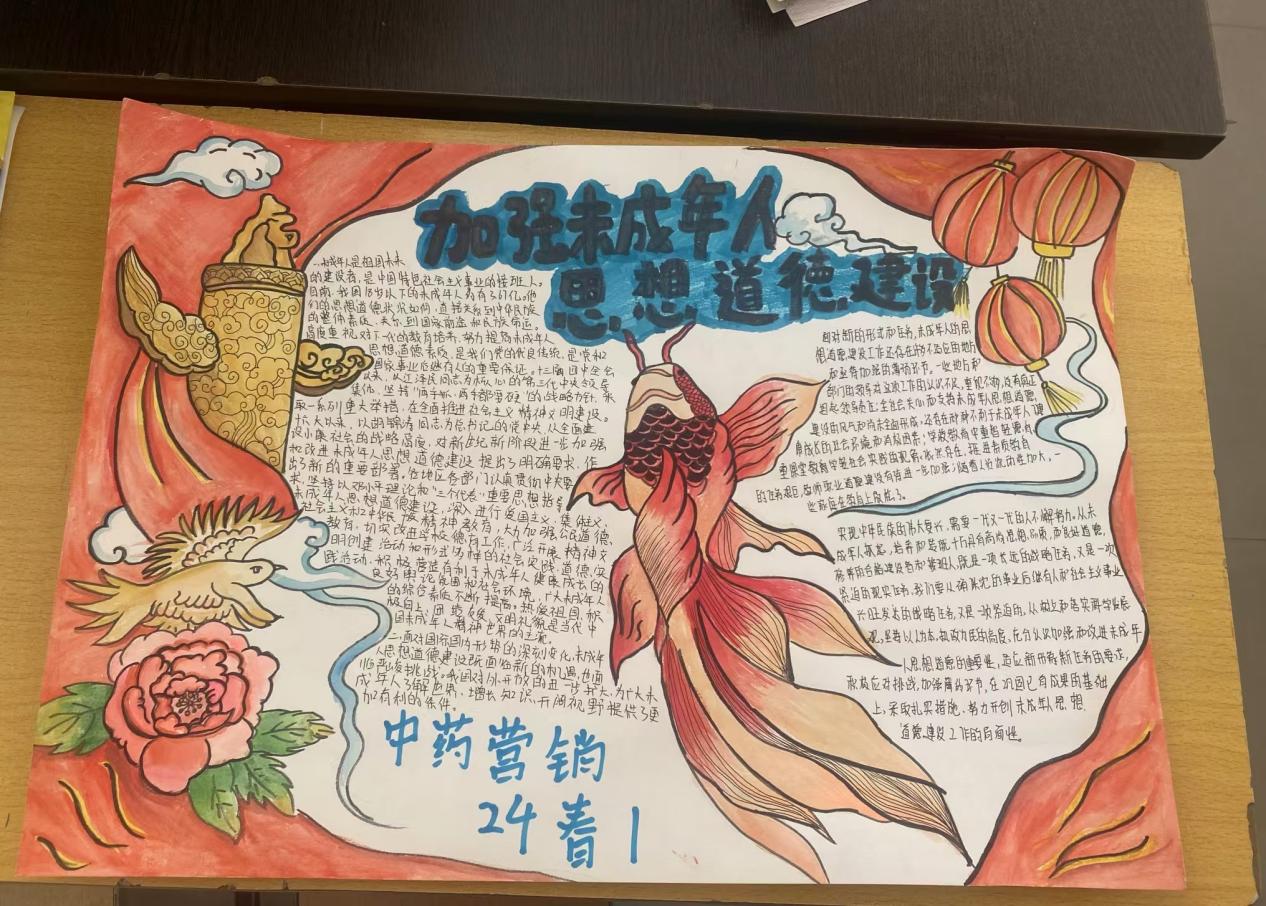 加强未成年人
思想道德建设
一.未成年人是祖国未来
的建设者,是中国特色社会主义事业的接班人。
目前,我国18岁以下的未成年人约有3.67亿。他
们的思想道德状况如何,直接关系到中华民族
的整体素质,关系到国家前途和民族命运。
高度重视对下一代的教育培养,努力提高未成年人
思想道德素质,是我们党的优良传统,是党和
国家事业后继有人的重要保证。十三届四中全会
以来,以江泽民同志为核心的第三代中央领导
集体,坚持"两手抓、两手都要硬"的战略方针,采
取一系列重大举措,在全面推进社会主义精神文明建设。
十六大以来,以胡锦涛同志为总书记的党中央,从全面建
设小康社会的战略高度,对新世纪新阶段进一步加强
和改进未成年人思想道德建设提出了明确要求,作
出了新的重要部署。各地区各部门认真贯彻中央要
求,坚持以邓小平理论和"三个代表"重要思想指导
未成年人思想道德建设,深入进行爱国主义、集体主义、
社会主义和中华民族精神教育,大力加强公民道德
教育,切实改进学校德育工作,广泛开展精神文
明创建活动和形式多样的社会实践、道德实
践活动,积极营造有利于未成年人健康成长的
良好舆论氛围和社会环境,广大未成年人
的综合素质不断提高。热爱祖国、积
极向上、团结友爱、文明礼貌是当代中
国未成年人精神世界的主流。
二.面对国际国内形势的深刻变化,未成年
人思想道德建设既面临新的机遇,也面
临严峻挑战。我国对外开放的进一步扩大,为广大未
成年人了解世界、增长知识、开阔视野提供了更
加有利的条件。
中药营销
24春1
面对新的形式和任务,未成年人的思
想道德建设工作还存在许多不适应的地方
和亟待加强的薄弱环节。一些地方和
部门的领导对这项工作的认识不足,重视不够,没有真正
担起领导责任;全社会关心和支持未成年人思想道德
建设的风气尚未全面形成,还存在种种不利于未成年人健
康成长的社会环境和消极因素;学校教育中重智轻德、
重课堂教学轻社会实践的现象依然存在,推进素质教育
的任务艰巨,教师职业道德建设有待进一步加强;随着人员流动性加大,一
些家庭在教育上放松了。
实现中华民族的伟大复兴,需要一代又一代的人不懈努力。从未
成年人抓起,培养和造就千万具有高尚思想品质和良好道德
修养的合格建设者和接班人,既是一项长远的战略任务,又是一次
紧迫的现实任务,我们要从确保党的事业后继有人和社会主义事业
兴旺发达的战略任务,又是一项紧迫的,从树立和落实科学发展
观,坚持以人为本,执政为民的高度,充分认识加强和改进未成年
人思想道德的重要性,适应新形势新任务的要求,
积极应对挑战,加强薄弱环节,在巩固已有成果的基础
上,采取扎实措施,努力开创未成年人思想
道德建设工作的新局面。